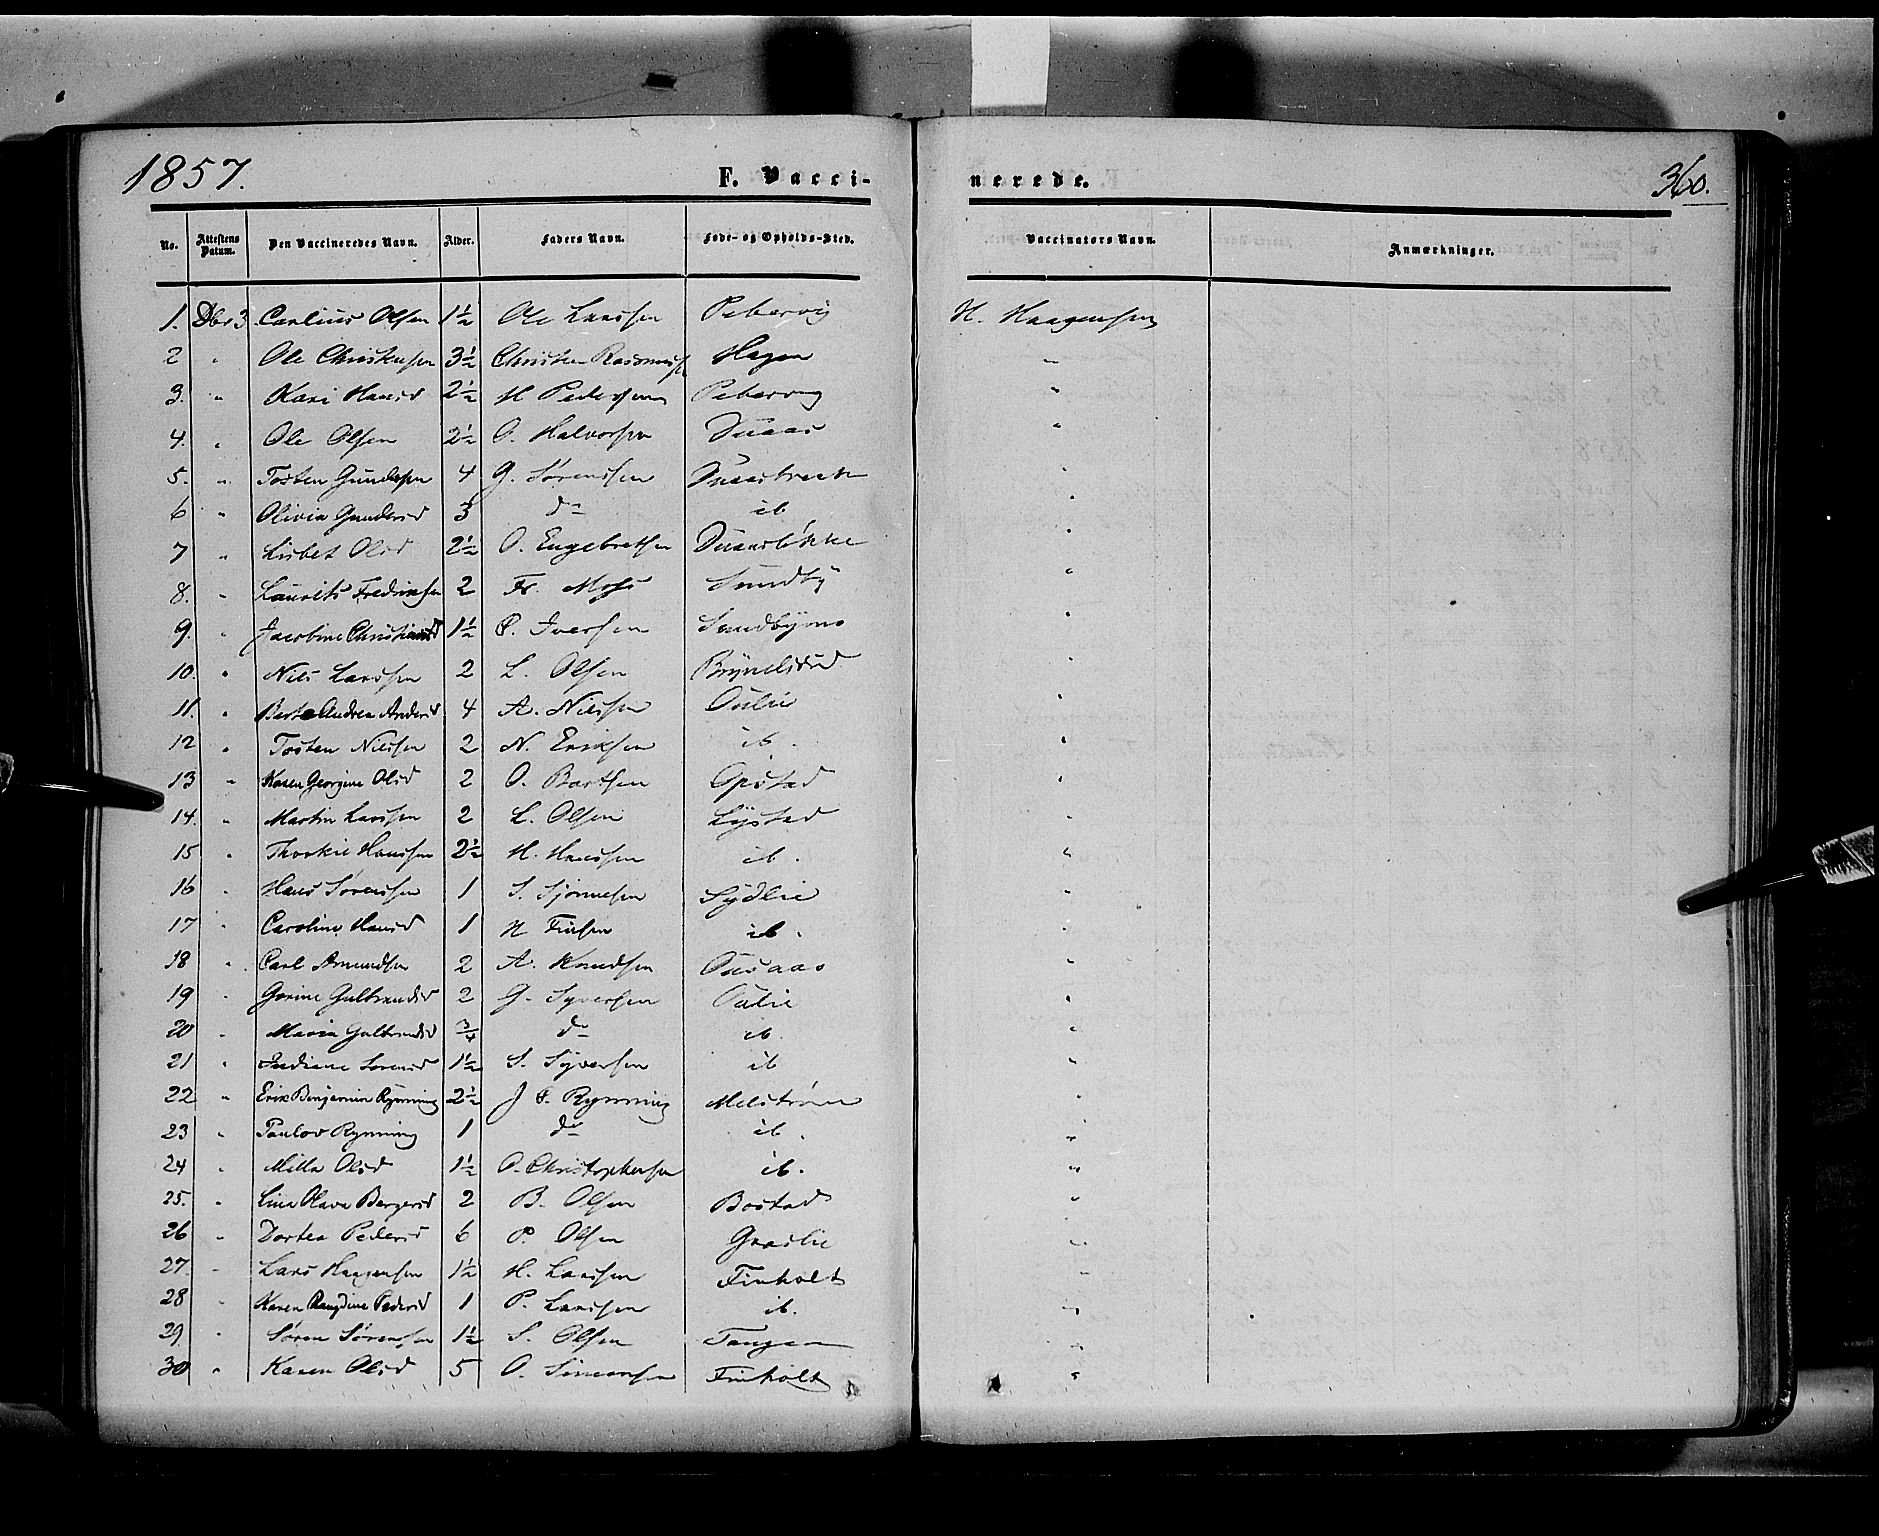 1857. F. Vacci- nerede. 360.
No. Attestens Datum. Den Vaccineredes Navn. Alder. Faders Navn. Føde- og Opholds-Sted. Vaccinators Navn. Anmærkninger.
1. Dbr 3 Carlius Olsen 1½ Ole Larssen Pebervig H. Haagensen
2 " Ole Christensen 3½ Christen Rasmuss Hagen "
3. " Kari Hansd 2½ H Pedersen Pebervig "
4. " Ole Olsen 2½ O. Halvorsen "
5. " Tosten Gundersen 4 G. Sørenssen "
6 " Olivia Gundersd 3 do ib "
7 " Lisbet Olsd 2½ O. Engebretsen "
8. " Laurits Fredriksen 2 Fr. Moss Sundby "
9. " Jacobine Christiansd 1½ P. Iversen "
10. " Nils Larssen 2 L. Olsen Brynelsrud "
11. " Berte Andrea Andersd 4 A. Nilssen Oulie "
12 " Tosten Nilssen 2 N. Eriksen ib. "
13 " Karen Georgine Olsd 2 O. Bartsen Opstad "
14. " Martin Larssen 2 L. Olsen Lystad "
15 " Hanssen 2½ H. Hanssen ib. "
16 " Hans Sørenssen 1 S. Lydlie "
17 " Caroline Hansd 1 H Finsen ib. "
18 " Carl Amundsen 2 A. Knudsen "
19 " Gorine Gulbrandsd 2 G. Syversen Oulie "
20 " Maria Gulbrandsd ¾ do ib. "
21 " Sorensd 1½ S. Syversen ib "
22 " Erik Benjamin Rynning 2½ J F. Rynning Melstrøm "
23 " Rynning 1 do ib. "
24 " Milla Olsd 1½ O. Christophersen ib. "
25. " Lina Olava Bergersd 2 B. Olsen Bostad "
26 " Dortea Pedersd 6 P. Olsen Graslie "
27. " Lars Haagensen 1½ H. Larssen Finholt "
28 " Karen Rangdine Pedersd 1 P. Larssen ib. "
29 " Søren Sørenssen 1½ S. Olsen Tangen "
30 " Karen Olsd 5 O. Simensen Finholt "